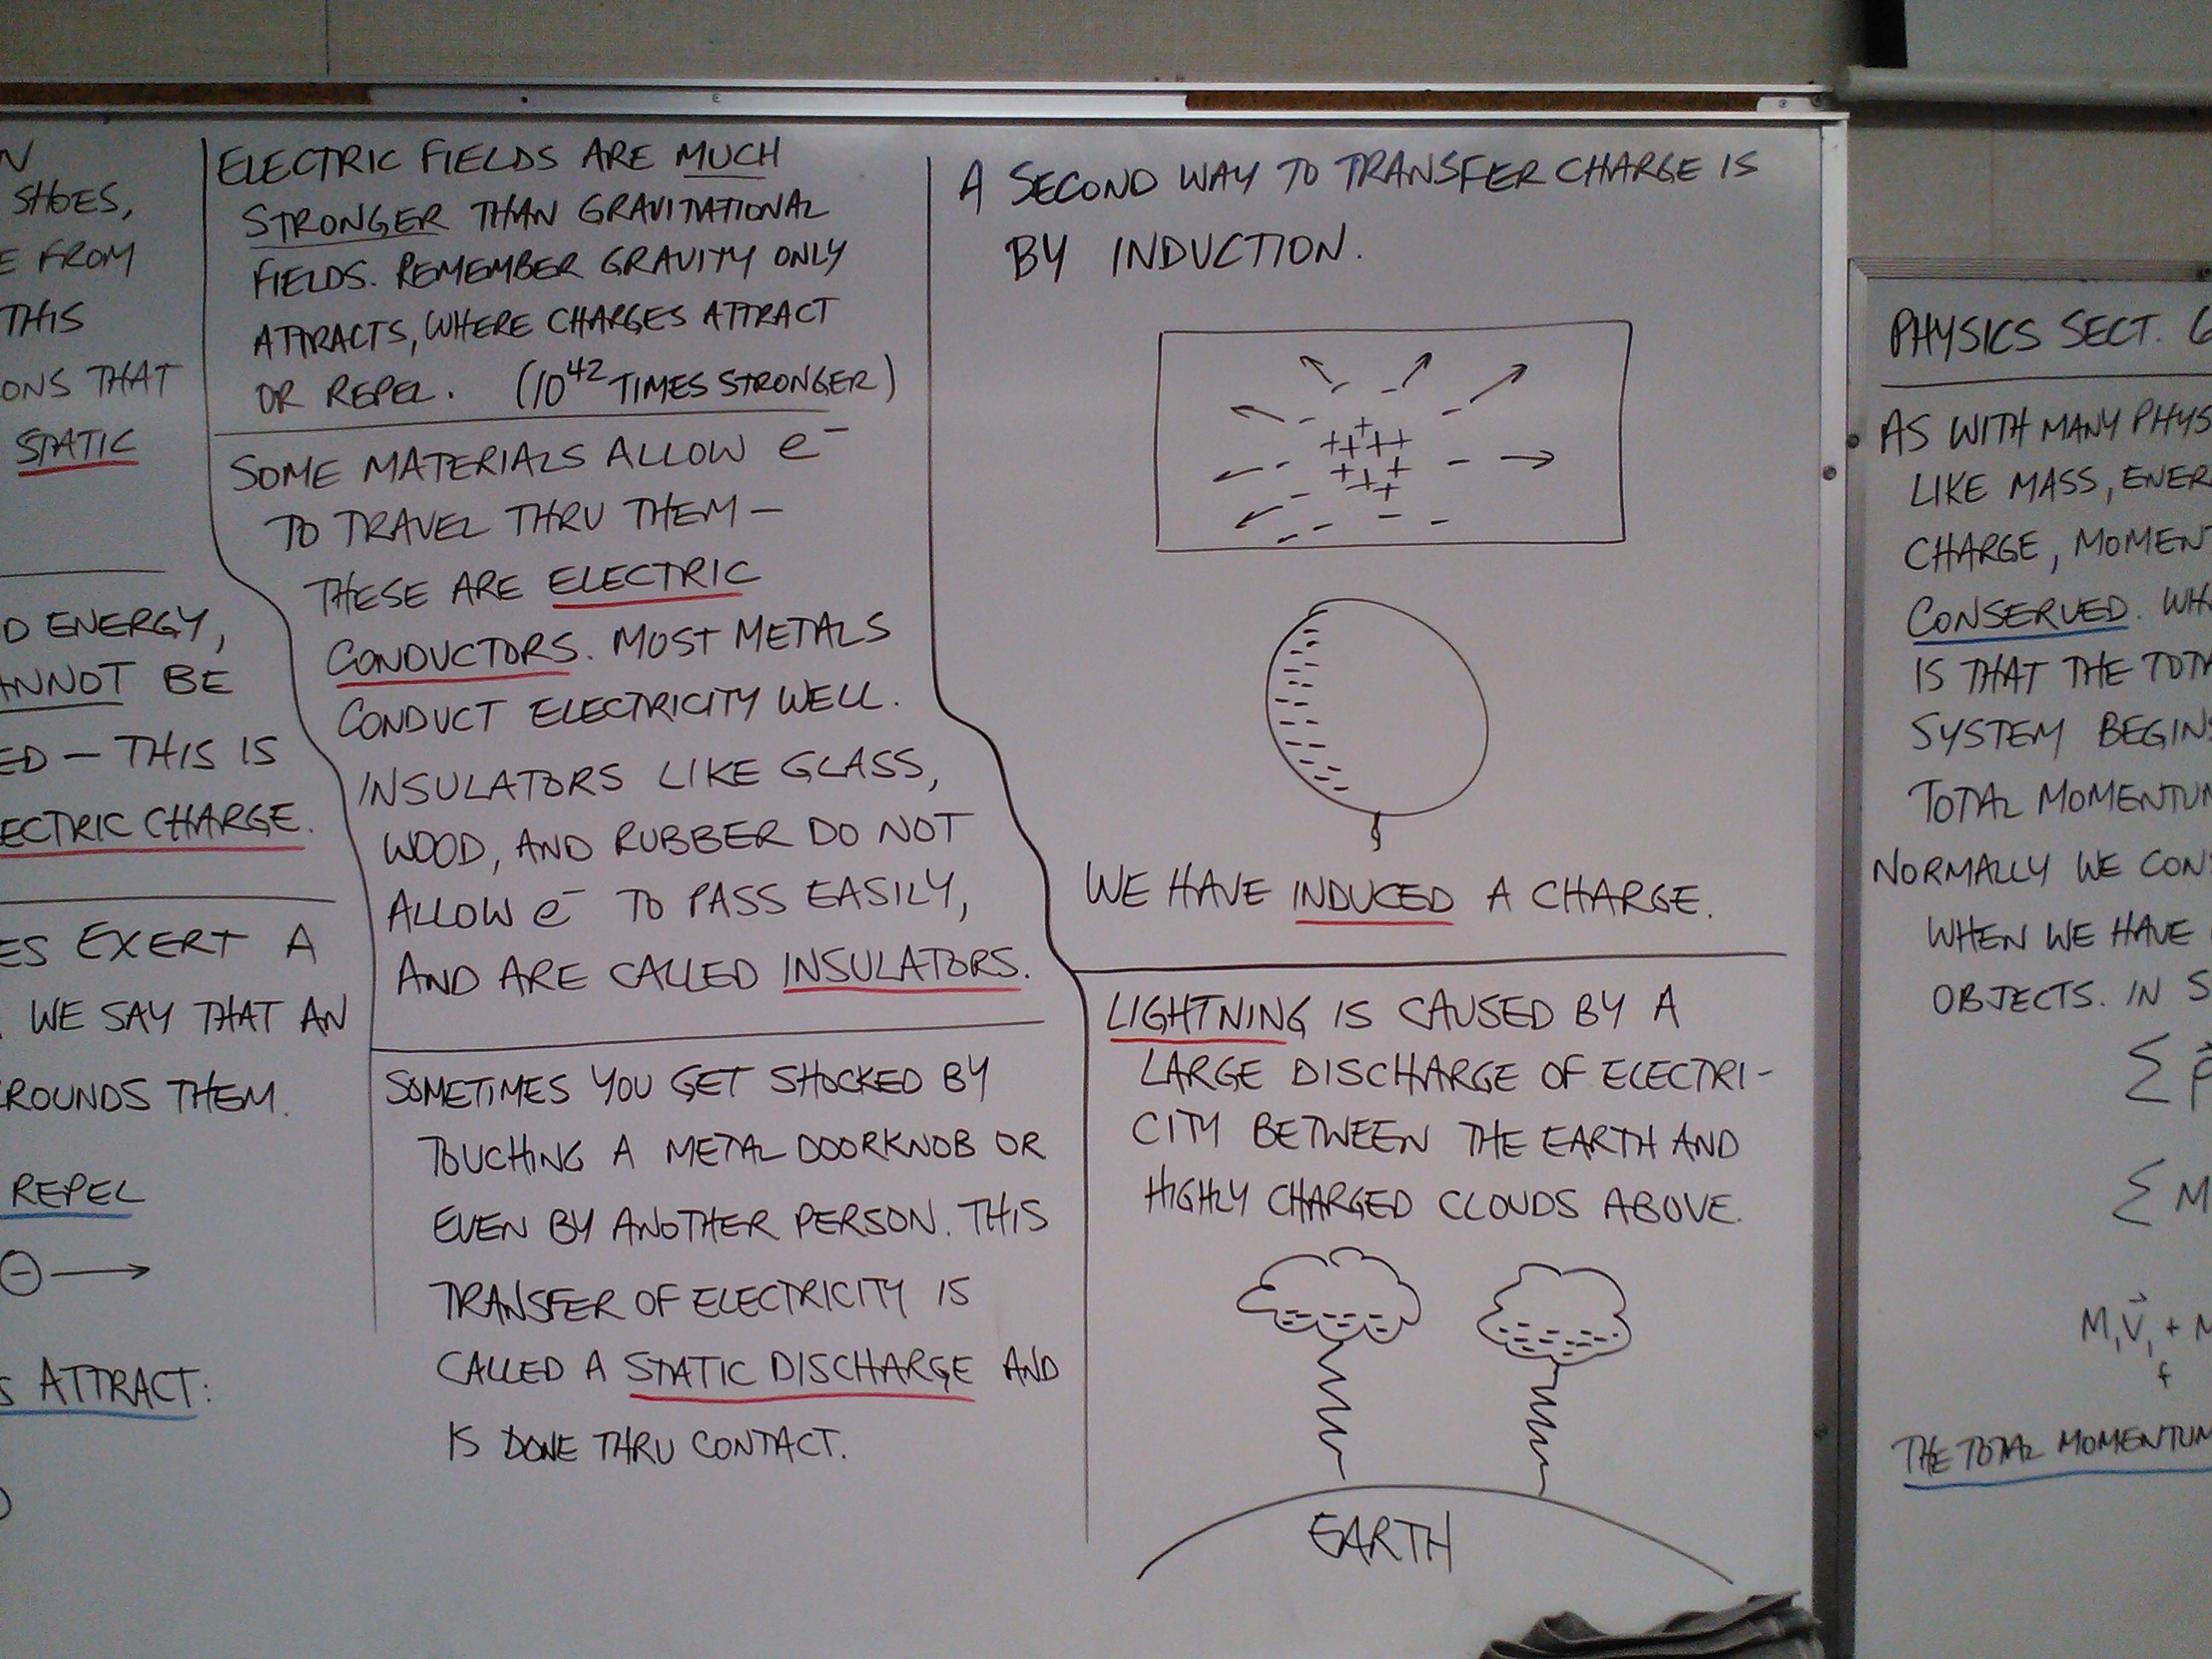 N
SHOES,
E FROM
THIS
ONS THAT
STATIC
D ENERGY,
ANNOT BE
ED — THIS IS
ECTRIC CHARGE.
ES EXERT A
. WE SAY THAT AN
ROUNDS THEM.
REPEL
⊖→
S ATTRACT:
ELECTRIC FIELDS ARE MUCH
STRONGER THAN GRAVITATIONAL
FIELDS. REMEMBER GRAVITY ONLY
ATTRACTS, WHERE CHARGES ATTRACT
OR REPEL. (10⁴² TIMES STRONGER)
SOME MATERIALS ALLOW e⁻
TO TRAVEL THRU THEM —
THESE ARE ELECTRIC
CONDUCTORS. MOST METALS
CONDUCT ELECTRICITY WELL.
INSULATORS LIKE GLASS,
WOOD, AND RUBBER DO NOT
ALLOW e⁻ TO PASS EASILY,
AND ARE CALLED INSULATORS.
SOMETIMES YOU GET SHOCKED BY
TOUCHING A METAL DOORKNOB OR
EVEN BY ANOTHER PERSON. THIS
TRANSFER OF ELECTRICITY IS
CALLED A STATIC DISCHARGE AND
IS DONE THRU CONTACT.
A SECOND WAY TO TRANSFER CHARGE IS
BY INDUCTION.
WE HAVE INDUCED A CHARGE.
LIGHTNING IS CAUSED BY A
LARGE DISCHARGE OF ELECTRI-
CITY BETWEEN THE EARTH AND
HIGHLY CHARGED CLOUDS ABOVE.
EARTH
PHYSICS SECT. 6
AS WITH MANY PHYS
LIKE MASS, ENER
CHARGE, MOMENT
CONSERVED. WHA
IS THAT THE TOTA
SYSTEM BEGINS
TOTAL MOMENTUM
NORMALLY WE CONS
WHEN WE HAVE
OBJECTS. IN S
Σ p⃗
Σ M
M₁V⃗₁ + M
f
THE TOTAL MOMENTUM